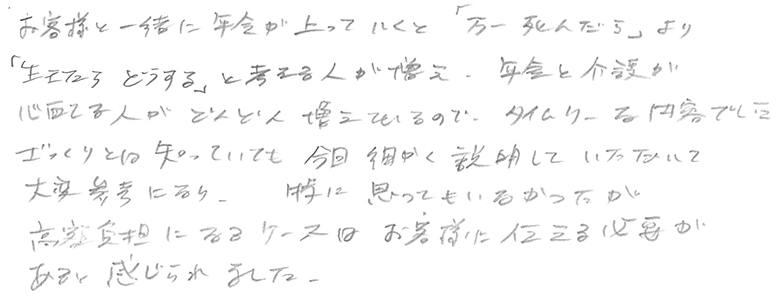 お客様と一緒に年令が上っていくと「万一死んだら」より
「生きたらどうする」と考える人が増え、年金と介護が
心配な人がどんどん増えているので、タイムリーな内容でした
ざっくりとは知っていても今回細かく説明していただいて
大変参考になり、特に思ってもいなかったが
高額負担になるケースはお客様に伝える必要が
あると感じられました。